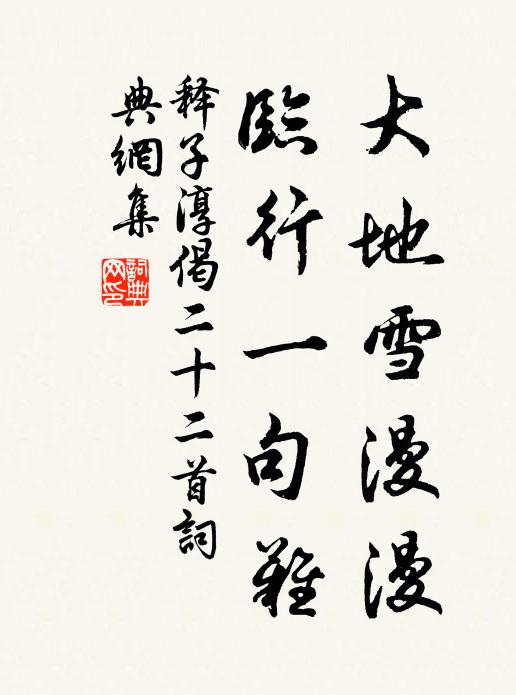 大地雪漫漫
臨行一句難
释子淳偈二十二首詞
典網集
詞典
网印